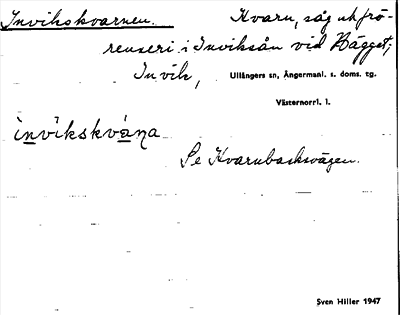 Invikskvarnen. Kvarn, såg och frö-
renseri i Inviksån vid Bägget;
Invik, Ullångers sn, Ångermanl. s. doms. tg.
Västernorrl. l.
invikskvàṇa
Se Kvarnbacksvägen.
Sven Hiller 1947